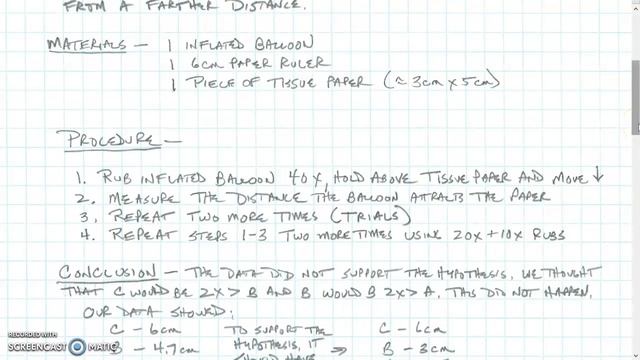 FROM A FARTHER DISTANCE.
MATERIALS — 1 INFLATED BALLOON
1 6cm PAPER RULER
1 PIECE OF TISSUE PAPER (≈ 3cm x 5cm)
PROCEDURE —
1. RUB INFLATED BALLOON 40X, HOLD ABOVE TISSUE PAPER AND MOVE ↓
2. MEASURE THE DISTANCE THE BALLOON ATTRACTS THE PAPER
3. REPEAT TWO MORE TIMES (TRIALS)
4. REPEAT STEPS 1-3 TWO MORE TIMES USING 20X + 10X RUBS
CONCLUSION — THE DATA DID NOT SUPPORT THE HYPOTHESIS, WE THOUGHT
THAT C WOULD BE 2X > B AND B WOULD B 2X > A. THIS DID NOT HAPPEN.
OUR DATA SHOWED:
C - 6cm TO SUPPORT THE C - 6cm
B - 4.7cm HYPOTHESIS, IT ⇒ B - 3cm
SHOULD HAVE
RECORDED WITH
SCREENCAST-O-MATIC